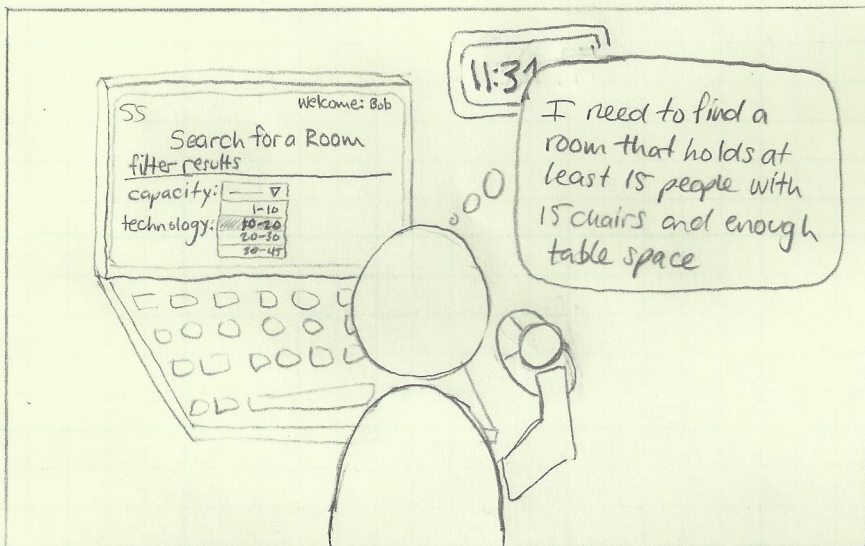 SS
Welcome: Bob
Search for a Room
filter results
capacity:
1-10
technology:
10-20
20-30
30-45
11:31
I need to find a
room that holds at
least 15 people with
15 chairs and enough
table space